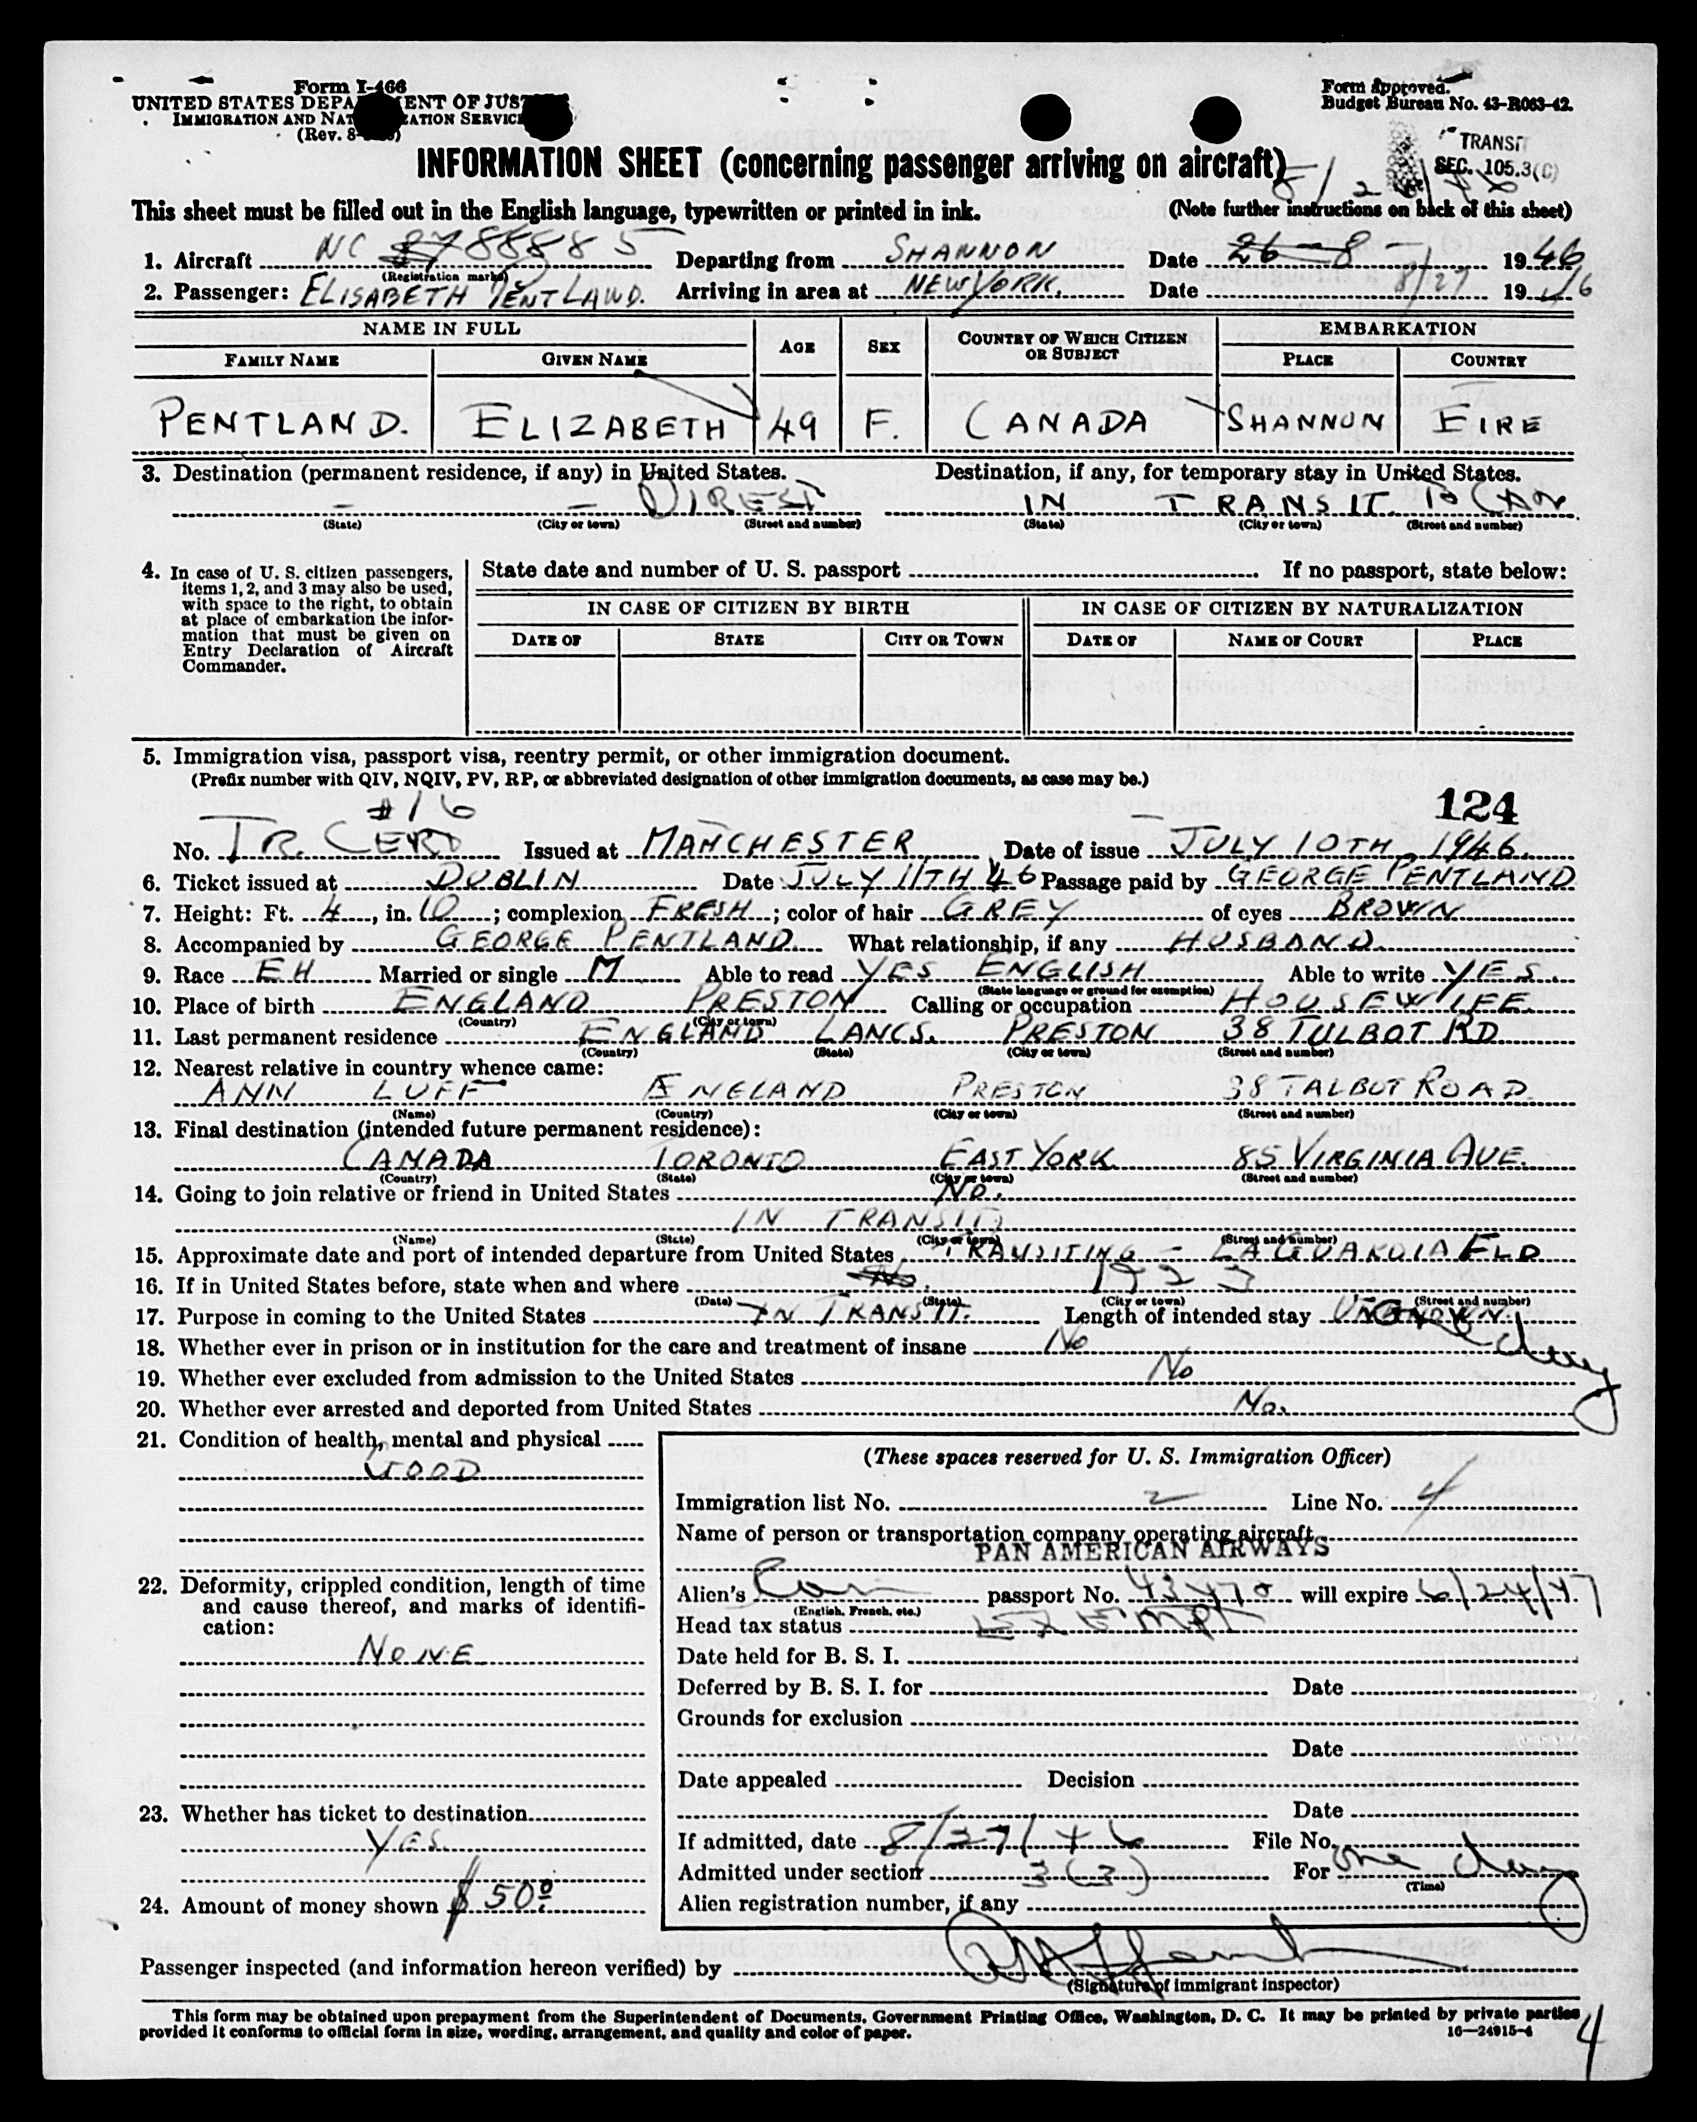 Form I-466
UNITED STATES DEPARTMENT OF JUSTICE
IMMIGRATION AND NATURALIZATION SERVICE
(Rev. 8-
Form Approved.
Budget Bureau No. 43-R063-42.
TRANSIT
SEC. 105.3(C)
INFORMATION SHEET (concerning passenger arriving on aircraft)
This sheet must be filled out in the English language, typewritten or printed in ink. (Note further instructions on back of this sheet)
1. Aircraft NC 88885 Departing from SHANNON Date 26-8- 1946
(Registration marks)
2. Passenger: ELISABETH PENTLAND. Arriving in area at NEW YORK. Date 8/27 1946
NAME IN FULL AGE SEX COUNTRY OF WHICH CITIZEN OR SUBJECT EMBARKATION
FAMILY NAME GIVEN NAME PLACE COUNTRY
PENTLAND. ELIZABETH 49 F. CANADA SHANNON EIRE
3. Destination (permanent residence, if any) in United States. Destination, if any, for temporary stay in United States.
— — DIRECT IN TRANSIT. TO CAN
(State) (City or town) (Street and number) (State) (City or town) (Street and number)
4. In case of U. S. citizen passengers, items 1, 2, and 3 may also be used, with space to the right, to obtain at place of embarkation the information that must be given on Entry Declaration of Aircraft Commander.
State date and number of U. S. passport If no passport, state below:
IN CASE OF CITIZEN BY BIRTH IN CASE OF CITIZEN BY NATURALIZATION
DATE OF STATE CITY OR TOWN DATE OF NAME OF COURT PLACE
5. Immigration visa, passport visa, reentry permit, or other immigration document.
(Prefix number with QIV, NQIV, PV, RP, or abbreviated designation of other immigration documents, as case may be.)
#16
124
No. TR. CERT Issued at MANCHESTER Date of issue JULY 10TH 1946.
6. Ticket issued at DUBLIN Date JULY 11TH 46 Passage paid by GEORGE PENTLAND
7. Height: Ft. 4, in. 10; complexion FRESH; color of hair GREY of eyes BROWN
8. Accompanied by GEORGE PENTLAND What relationship, if any HUSBAND.
9. Race EH Married or single M Able to read YES ENGLISH Able to write YES.
(State language or ground for exemption)
10. Place of birth ENGLAND PRESTON Calling or occupation HOUSEWIFE.
(Country) (City or town)
11. Last permanent residence ENGLAND LANCS. PRESTON 38 TULBOT RD
(Country) (State) (City or town) (Street and number)
12. Nearest relative in country whence came:
ANN LUFF ENGLAND PRESTON 38 TALBOT ROAD.
(Name) (Country) (City or town) (Street and number)
13. Final destination (intended future permanent residence):
CANADA TORONTO EAST YORK 85 VIRGINIA AVE.
(Country) (State) (City or town) (Street and number)
14. Going to join relative or friend in United States No.
IN TRANSIT
(Name) (State) (City or town) (Street and number)
15. Approximate date and port of intended departure from United States TRANSITING - LAGUARDIA FLD
16. If in United States before, state when and where No. 1923
(Date) (State) (City or town) (Street and number)
17. Purpose in coming to the United States IN TRANSIT. Length of intended stay UNKNOWN. One day
18. Whether ever in prison or in institution for the care and treatment of insane No
19. Whether ever excluded from admission to the United States No
20. Whether ever arrested and deported from United States No.
21. Condition of health, mental and physical
GOOD
22. Deformity, crippled condition, length of time and cause thereof, and marks of identification:
NONE
23. Whether has ticket to destination
YES.
24. Amount of money shown $50.00
(These spaces reserved for U. S. Immigration Officer)
Immigration list No. 2 Line No. 4
Name of person or transportation company operating aircraft
PAN AMERICAN AIRWAYS
Alien's Can passport No. 43470 will expire 6/24/47
(English, French, etc.)
Head tax status EXEMPT
Date held for B. S. I.
Deferred by B. S. I. for Date
Grounds for exclusion
Date
Date appealed Decision
Date
If admitted, date 8/27/46 File No.
Admitted under section 3(3) For one day
(Time)
Alien registration number, if any
Passenger inspected (and information hereon verified) by
(Signature of immigrant inspector)
This form may be obtained upon prepayment from the Superintendent of Documents, Government Printing Office, Washington, D. C. It may be printed by private parties
provided it conforms to official form in size, wording, arrangement, and quality and color of paper. 16—24915-4
4